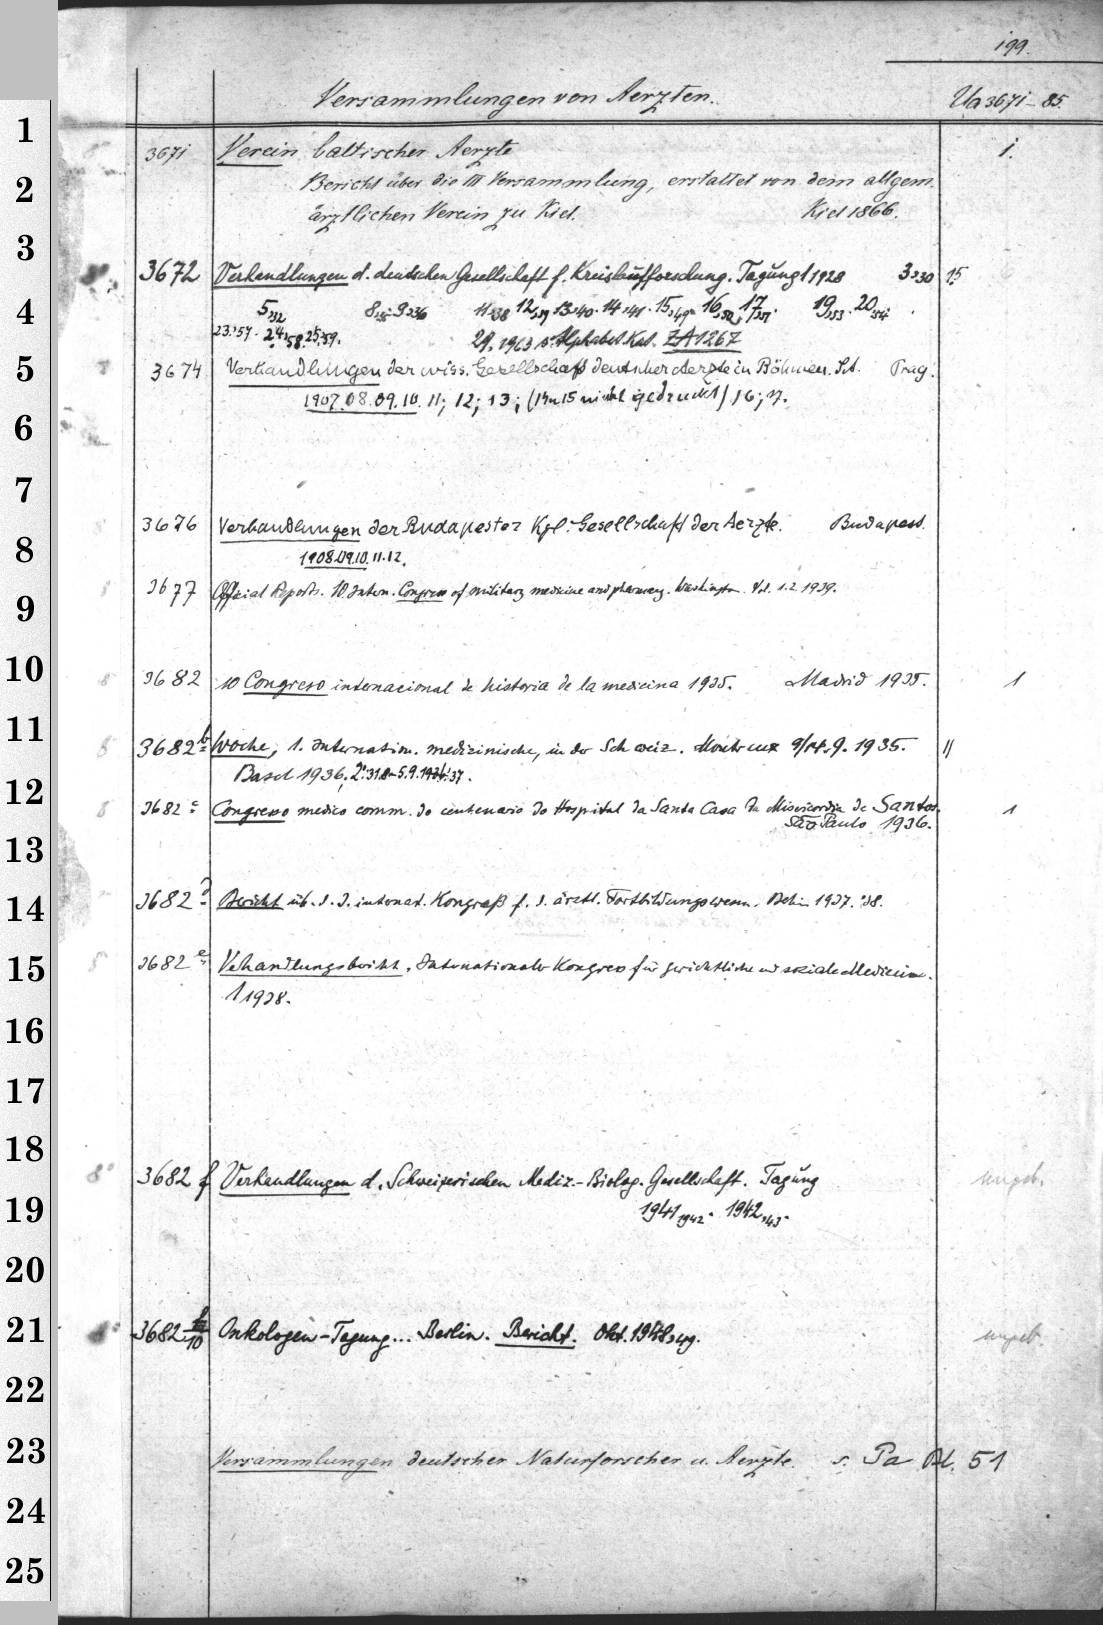 199.
Versammlungen von Aerzten. Ua 3671-85.
1
3671 Verein baltischer Aerzte 1.
2
Bericht über die III Versammlung, erstattet von dem allgem.
ärztlichen Verein zu Kiel. Kiel 1866.
3
3672 Verhandlungen d. deutschen Gesellschaft f. Kreislaufforschung. Tagung 1 1928 3,30 15
4
5,32 8,35. 9,36 11,38 12,39 13,40. 14,41. 15,49. 16,50. 17,51. 19,53. 20,54.
23,57. 24,58. 25,59. 29, 1963 s. Alphabet. Kat. ZA 1267
5
3674 Verhandlungen der wiss. Gesellschaft deutscher Aerzte in Böhmen. Prag.
1907. 08. 09. 10. 11; 12; 13; (14 u 15 nicht gedruckt) 16; 17.
6
7
3676 Verhandlungen der Budapester Kgl. Gesellschaft der Aerzte. Budapest.
8
1908.09.10. 11.12.
9
3677 Official Reports. 10. Intern. Congress of military medicine and pharmacy. Washington. Vol. 1.2. 1939.
10
3682 10 Congreso internacional de historia de la medicina 1935. Madrid 1935. 1
11
3682 b Woche, 1. Internation. medizinische, in der Schweiz. Montreux 9/14. 9. 1935. 11
Basel 1936; 2. 31.8-5.9. 37.
12
3682 c Congresso medico comm. do centenario do Hospital da Santa Casa da Misericordia de Santos. 1
São Paulo 1936.
13
14
3682 d Bericht üb. d. I. internat. Kongreß f. d. ärztl. Fortbildungswesen. Berlin 1937. '38.
15
3682 e Verhandlungsbericht. Internationaler Kongress für gerichtliche und soziale Medizin.
1 1938.
16
17
18
8° 3682 f Verhandlungen d. Schweizerischen Mediz.-Biolog. Gesellschaft. Tagung ungeb.
19
1941,1942. 1942,43.
20
21
3682 f/10 Onkologen-Tagung... Berlin. Bericht. Okt. 1948,49. ungeb.
22
23
Versammlungen deutscher Naturforscher u. Aerzte. s. Pa Bl. 51
24
25